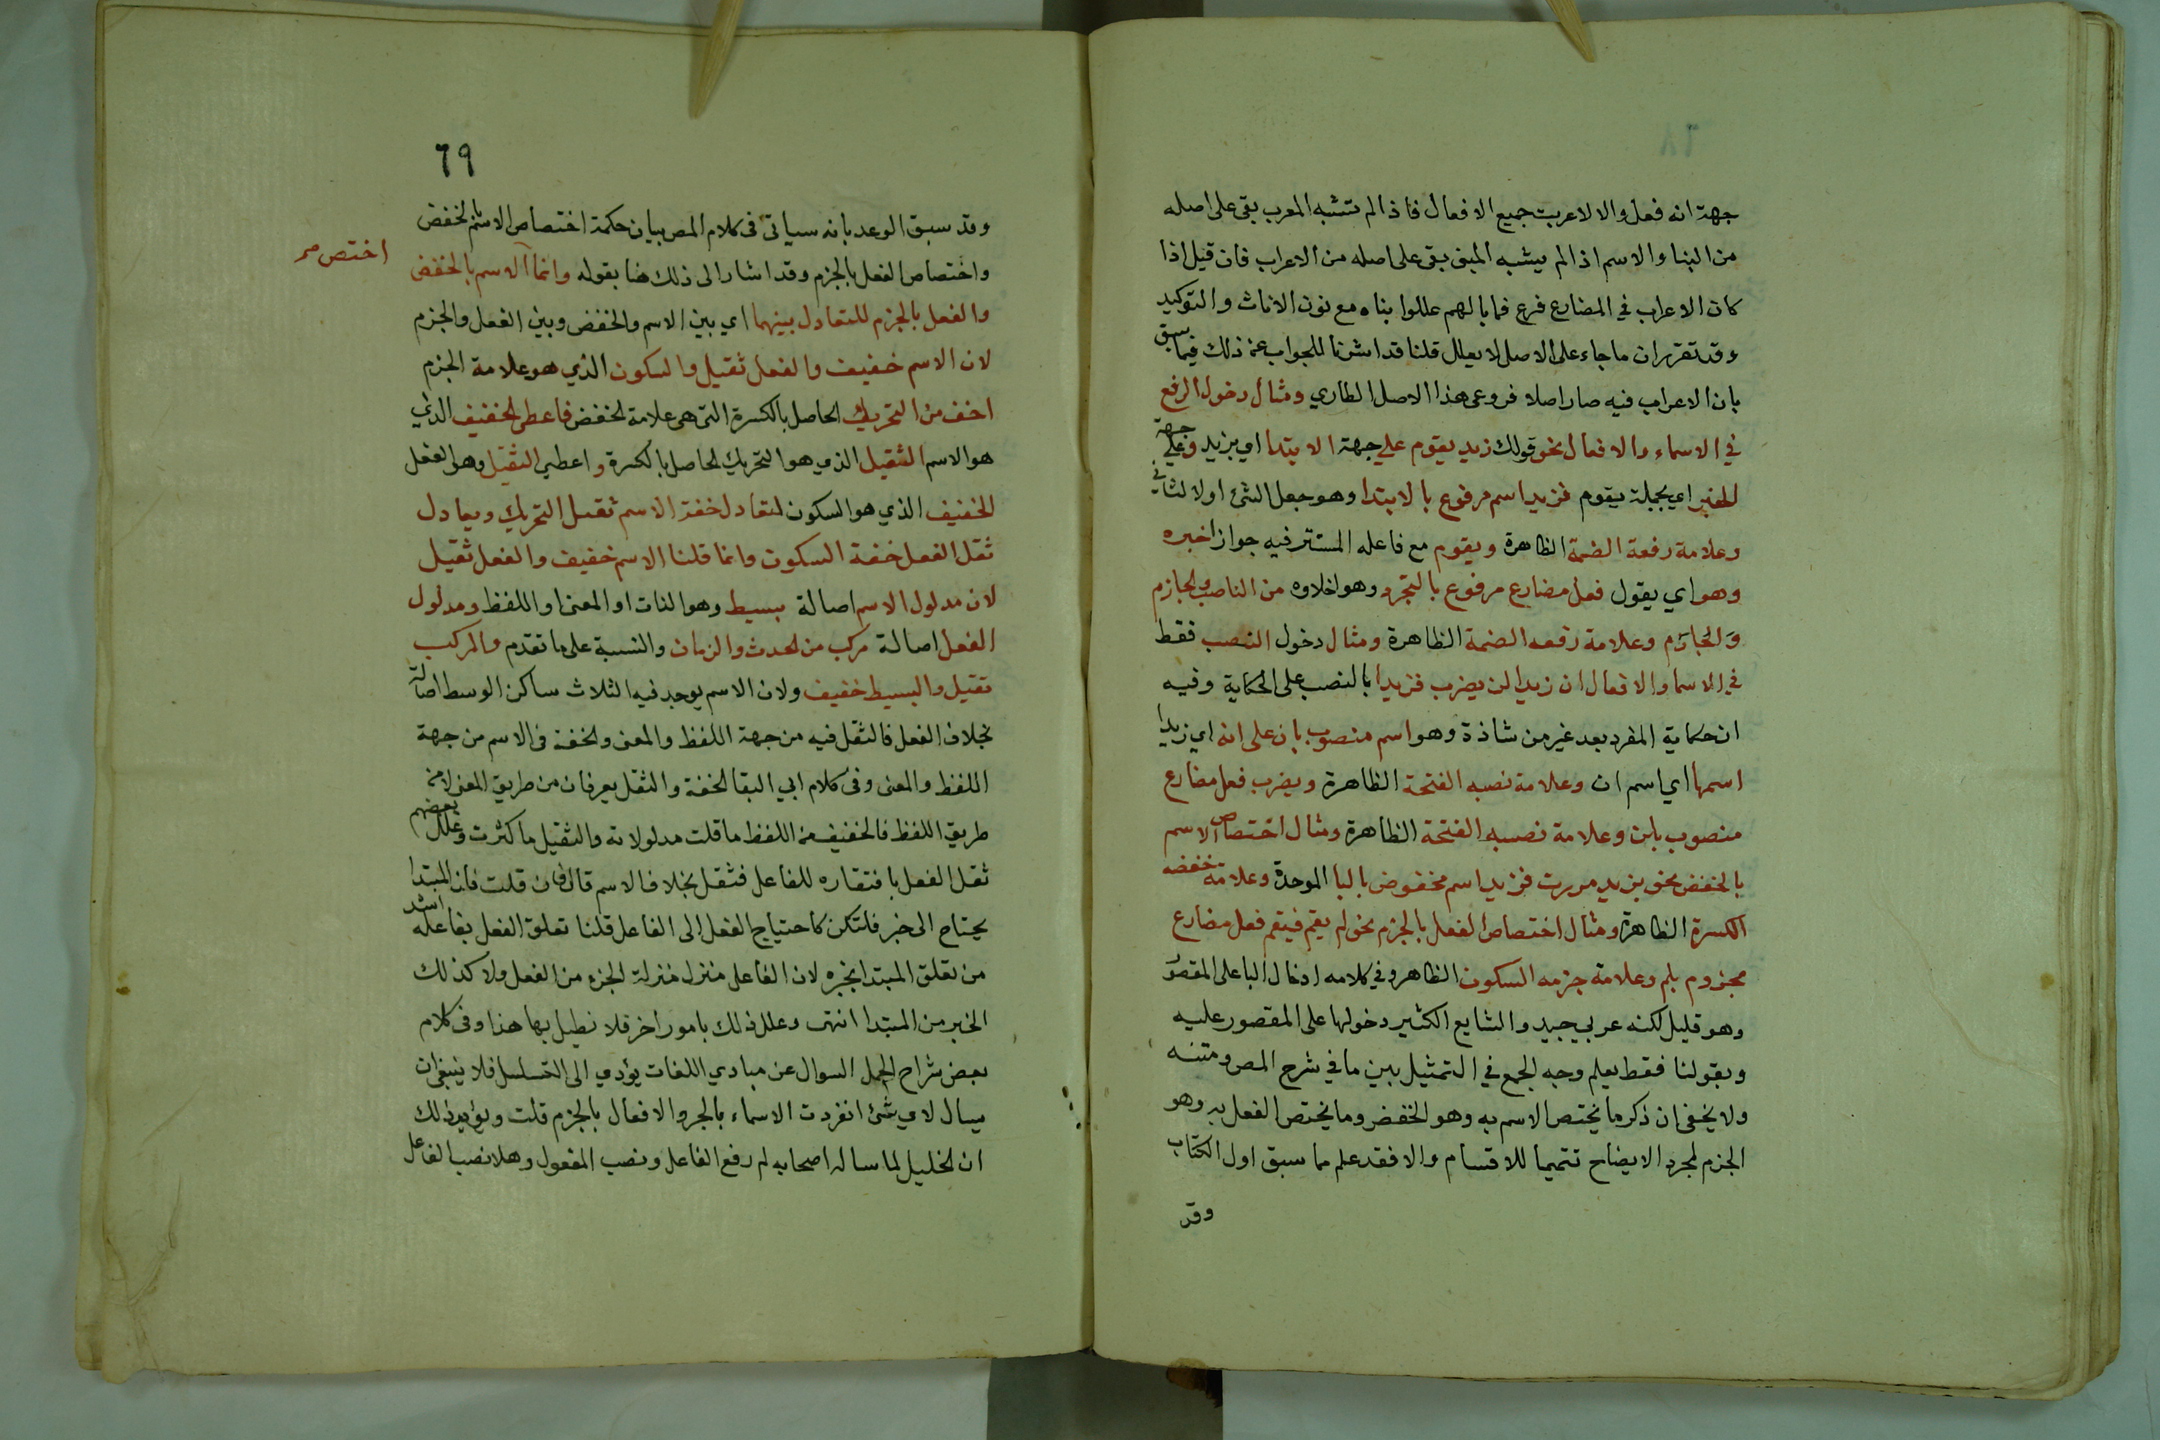 جهة انه فعل والا لاعربت جميع الافعال فاذا لم تشبه المعرب بقى على اصله
من البنا والاسم اذا لم يشبه المبنى بقى على اصله من الاعراب فان قيل اذا
كان الاعراب في المضارع فرع فما بالهم عللوا بناه مع نون الاناث والتوكيد
وقد تقرر ان ما جاء على الاصل لا يعلل قلنا قد اشرنا للجواب عن ذلك فيما سبق
بان الاعراب فيه صار اصلا فروعى هذا الاصل الطاري ومثال دخول الرفع
في الاسماء والافعال نحو قولك زيد يقوم على جهة الابتدا اي بزيد وعلى جهة
الخبر اي بجملة يقوم فزيد اسم مرفوع بالابتدا وهو جعل الشئ اولا لثاني
وعلامة رفعة الضمة الظاهرة ويقوم مع فاعله المستتر فيه جوازا خبره
وهو اي يقول فعل مضارع مرفوع بالتجرد وهو اخلاوه من الناصب والجازم
والجازم وعلامة رفعه الضمة الظاهرة ومثال دخول النصب فقط
في الاسما والافعال ان زيدا لن يضرب فزيدا بالنصب على الحكاية وفيه
ان حكاية المفرد بعد غير من شاذة وهو اسم منصوب بان على انه اي زيدا
اسمها اي اسم ان وعلامة نصبه الفتحة الظاهرة ويضرب فعل مضارع
منصوب بلن وعلامة نصبه الفتحة الظاهرة ومثال اختصاص الاسم
بالخفض نحو بزيد مررت فزيد اسم مخفوض بالبا الموحدة وعلامة خفضه
الكسرة الظاهرة ومثال اختصاص الفعل بالجزم نحو لم يقم فيقم فعل مضارع
مجزوم بلم وعلامة جزمه السكون الظاهر وفي كلامه ادخال البا على المقصور
وهو قليل لكنه عربي جيد والشايع الكثير دخولها على المقصور عليه
وبقولنا فقط يعلم وجه الجمع في التمثيل بين ما في شرح المص ومتنه
ولا يخفى ان ذكر ما يختص الاسم به وهو الخفض وما يختص الفعل به وهو
الجزم لمجرد الايضاح تتميما للاقسام والا فقد علم مما سبق اول الكتاب
وقد
٦٩
وقد سبق الوعد بانه سياتى فى كلام المص بيان حكمة اختصاص الاسم بالخفض
واختصاص الفعل بالجزم وقد اشار الى ذلك هنا بقوله وانما الاسم بالخفض
اختص صح
والفعل بالجزم للتعادل بينهما اي بين الاسم والخفض وبين الفعل والجزم
لان الاسم خفيف والفعل ثقيل والسكون الذي هو علامة الجزم
اخف من التحريك الحاصل بالكسرة التى هى علامة الخفض فاعطى الخفيف الذي
هو الاسم الثقيل الذي هو التحريك الحاصل بالكسرة واعطي الثقيل وهو الفعل
الخفيف الذي هو السكون لتعادل خفة الاسم ثقل التحريك ويعادل
ثقل الفعل خفة السكون وانما قلنا الاسم خفيف والفعل ثقيل
لان مدلول الاسم اصالة بسيط وهو الذات او المعنى او اللفظ ومدلول
الفعل اصالة مركب من الحدث والزمان والنسبة على ما تقدم والمركب
ثقيل والبسيط خفيف ولان الاسم يوجد فيه الثلاث ساكن الوسط اصالة
بخلاف الفعل فالثقل فيه من جهة اللفظ والمعنى والخفة فى الاسم من جهة
اللفظ والمعنى وفى كلام ابي البقا الخفة والثقل يعرفان من طريق المعنى لا من
طريق اللفظ فالخفيف من اللفظ ما قلت مدلولاته والثقيل ما كثرت وعلل بعضهم
ثقل الفعل بافتقاره للفاعل فثقل بخلاف الاسم قال فان قلت فان المبتدا
يحتاج الى خبر فلتكن كاحتياج الفعل الى الفاعل قلنا تعلق الفعل بفاعله اشد
من تعلق المبتدا بخبره لان الفاعل منزل منزلة الجزء من الفعل ولا كذلك
الخبر من المبتدا انتهى وعلل ذلك بامور اخر فلا نطيل بها هذا وفى كلام
بعض شراح الجمل السوال عن مبادي اللغات يؤدي الى التسلسل فلا ينبغى ان
يسال لاي شئ انفردت الاسماء بالجر والافعال بالجزم قلت ويؤيد ذلك
ان الخليل لما ساله اصحابه لم رفع الفاعل ونصب المفعول وهلا نصب الفاعل